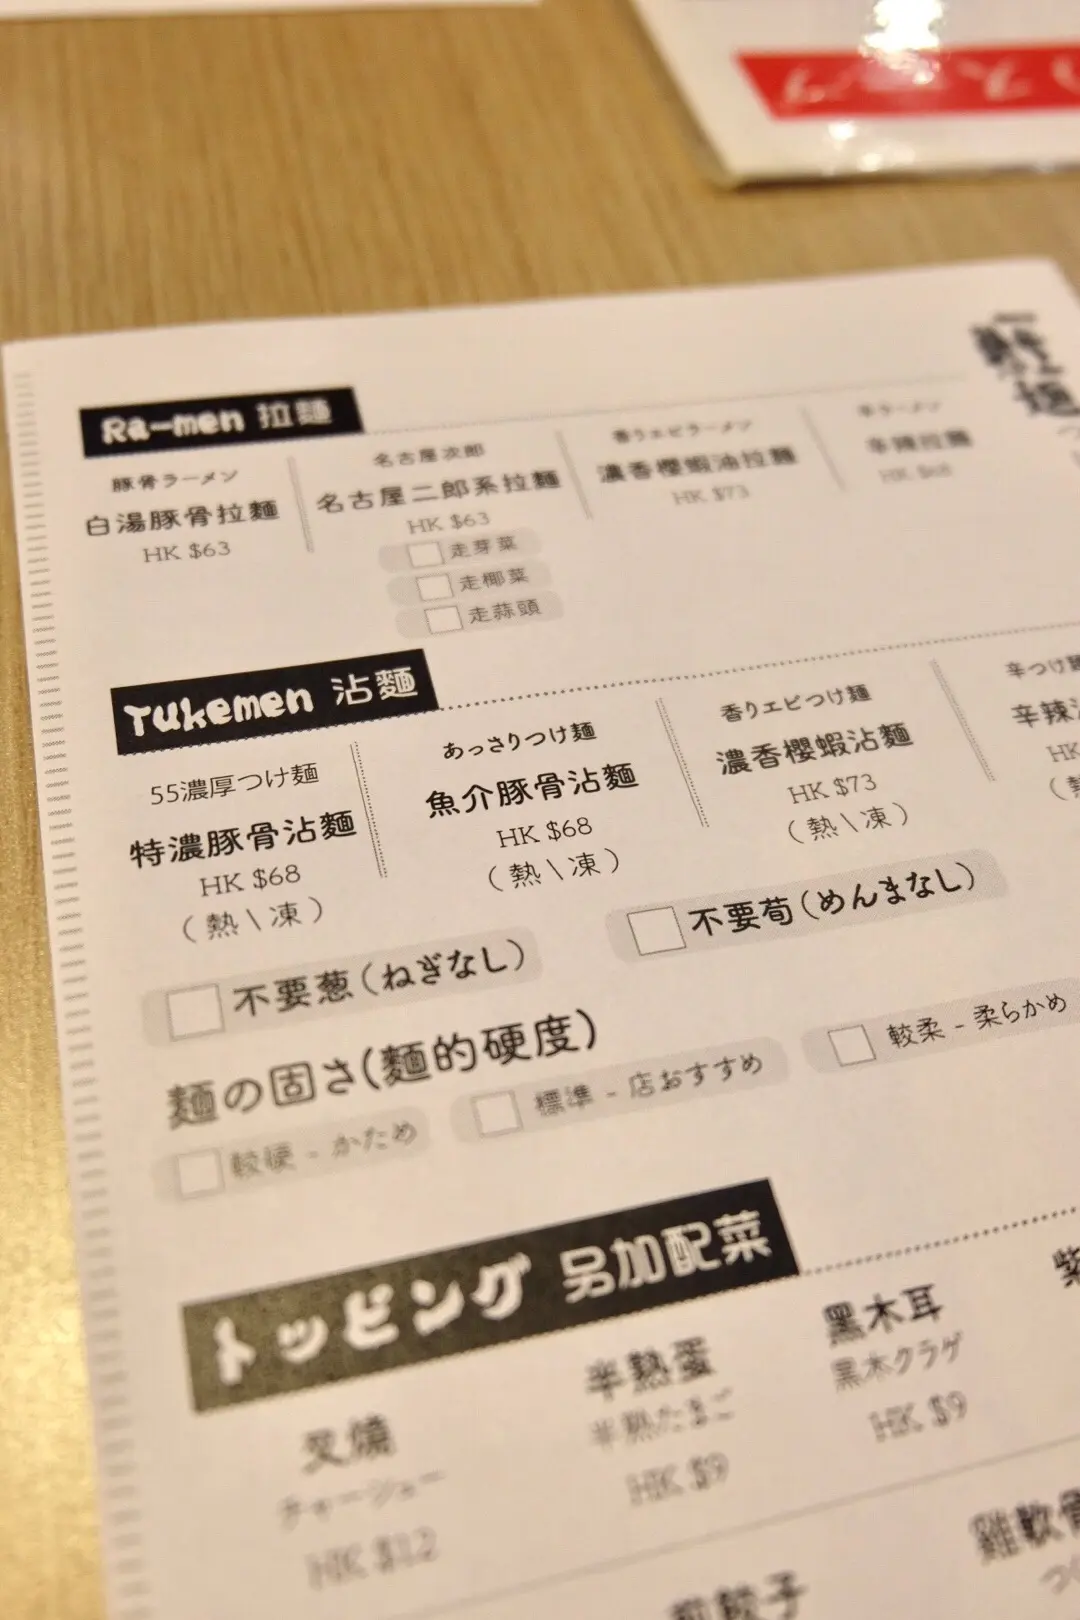 Ra-men 拉麵
豚骨ラーメン
白湯豚骨拉麵
HK $63
名古屋次郎
名古屋二郎系拉麵
HK $63
走芽菜
走椰菜
走蒜頭
香りエビラーメン
濃香櫻蝦油拉麵
HK $73
辛ラーメン
辛辣拉麵
HK $68
Tukemen 沾麵
55濃厚つけ麵
特濃豚骨沾麵
HK $68
(熱\凍)
あっさりつけ麵
魚介豚骨沾麵
HK $68
(熱\凍)
香りエビつけ麵
濃香櫻蝦沾麵
HK $73
(熱\凍)
辛つけ麵
辛辣
HK
不要葱(ねぎなし)
不要荀(めんまなし)
麺の固さ(麵的硬度)
較硬 - かため
標準 - 店おすすめ
較柔 - 柔らかめ
トッピング 另加配菜
叉燒
チャーシュー
HK $12
半熟蛋
半熟たまご
HK $9
黑木耳
黒木クラゲ
HK $9
紫
煎餃子
雞軟骨